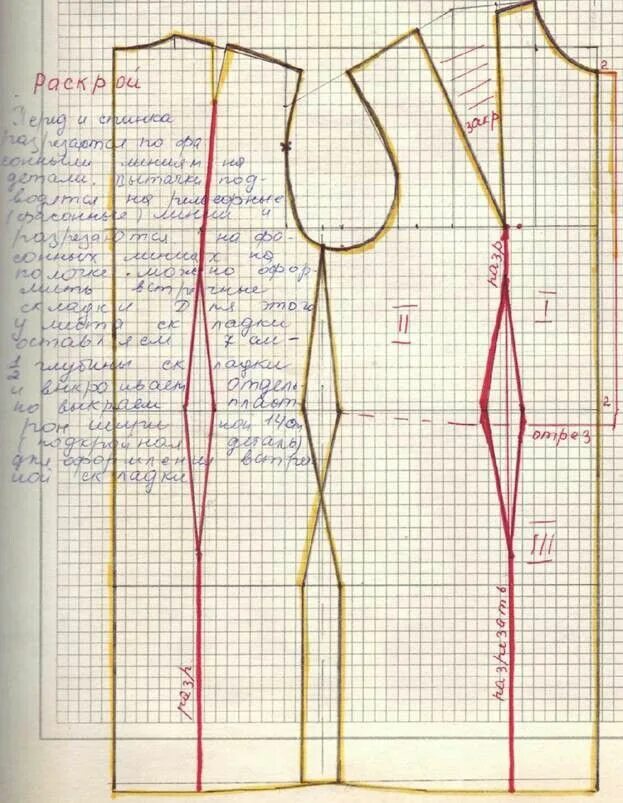 Раскрой
Перед и спинка
разрезаются по фа
сонным линиям на
детали. Вытачки под-
водятся на рельефные
(фасонные) линии и
разрезаются на фа-
сонных линиях по
полочке можно офор-
мить встречные
складки Для этого
у места складки
оставляем 7 см -
1/2 глубины складки
и выкраивает отдель
но выкраем пласт
рон шири ной 14см
(подкройная деталь)
для оформления встреч
ной складки
закр
разр
I
II
III
2
2
отрез
разр
разрезать